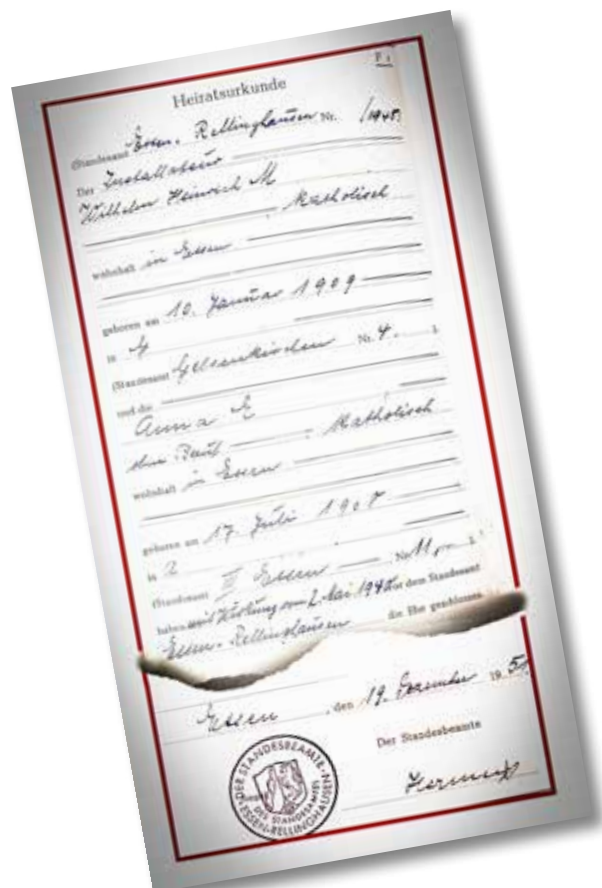 F 1
Heiratsurkunde
(Standesamt Essen-Rellinghausen Nr. /1945)
Der Installateur
Wilhelm Heinrich M
katholisch
wohnhaft in Essen
geboren am 10. Januar 1909
in G
(Standesamt Gelsenkirchen Nr. 4 ),
und die
Anna E
ohne Beruf, katholisch
wohnhaft in Essen
geboren am 17. Juli
in
(Standesamt III Essen Nr.
haben mit Wirkung vom 2. Mai 1945 vor dem Standesamt
Essen-Rellinghausen die Ehe geschlossen.
Essen, den 19. Dezember 19
Der Standesbeamte
DER STANDESBEAMTE
DES STANDESAMTES
ESSEN-RELLINGHAUSEN